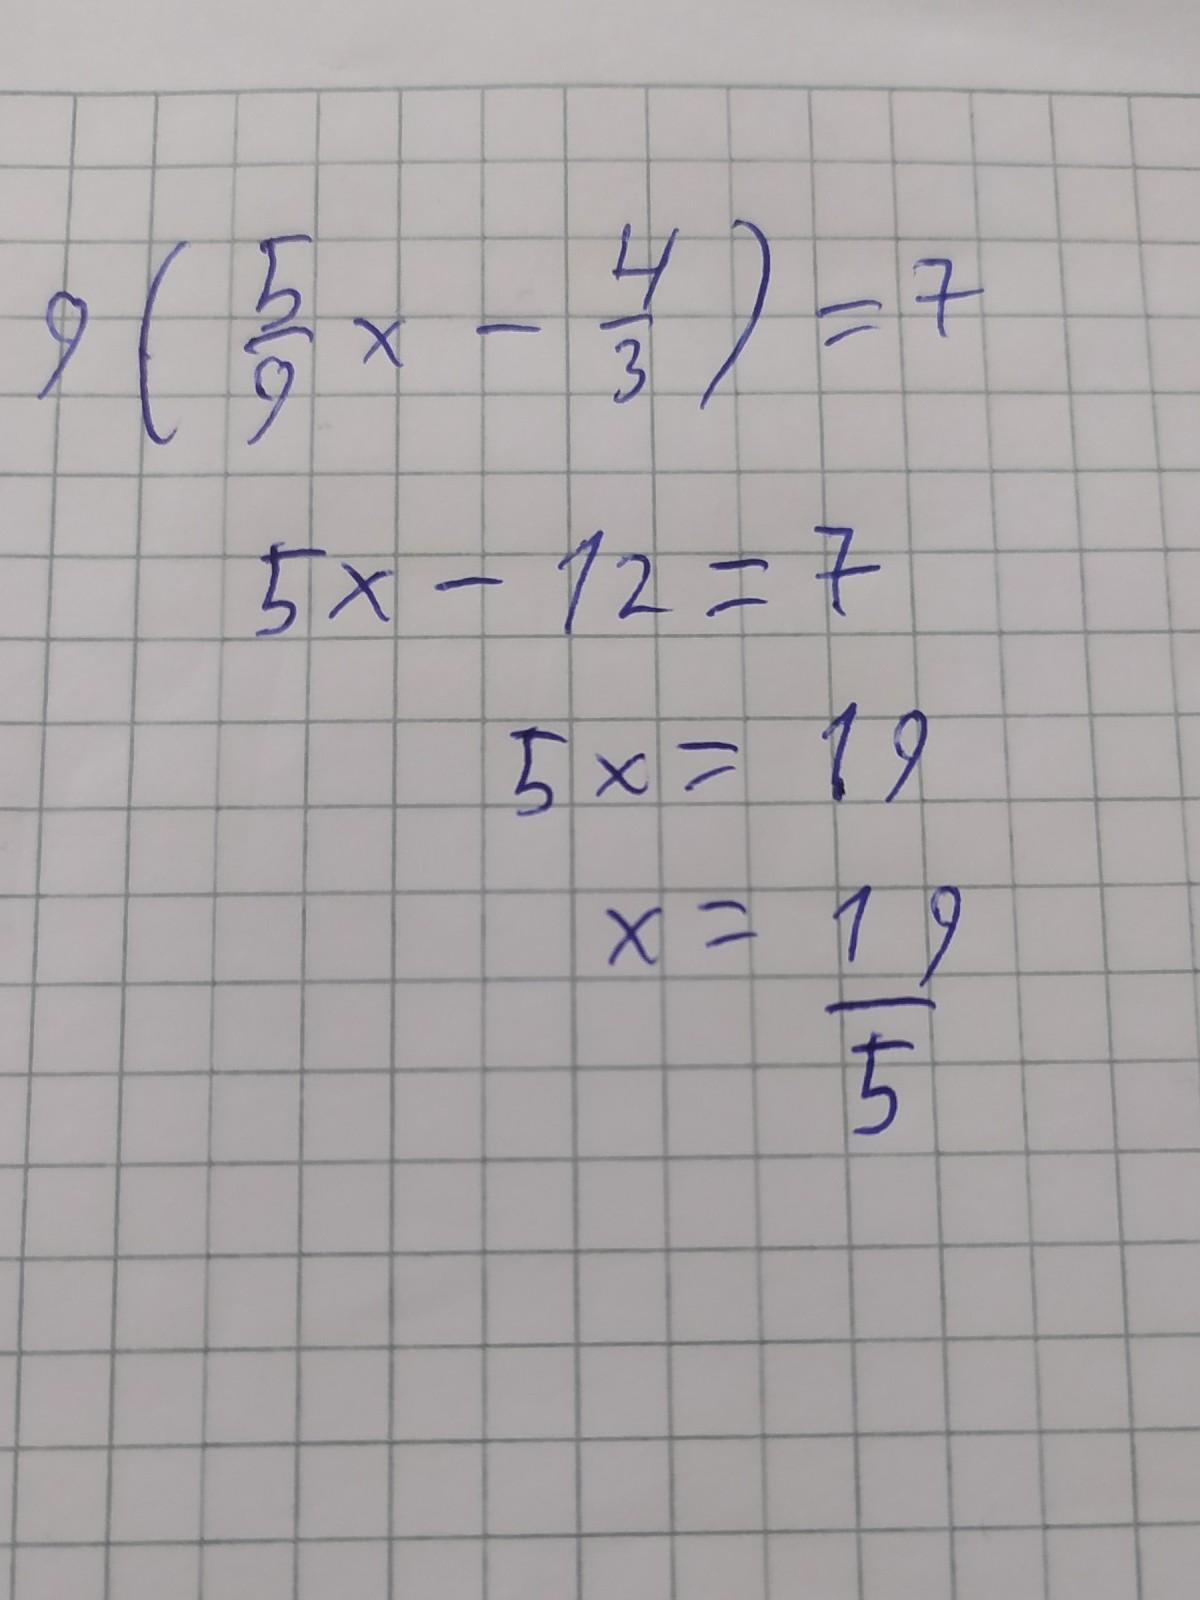 9 ( 5/9 x - 4/3 ) = 7
5x - 12 = 7
5x = 19
x = 19/5